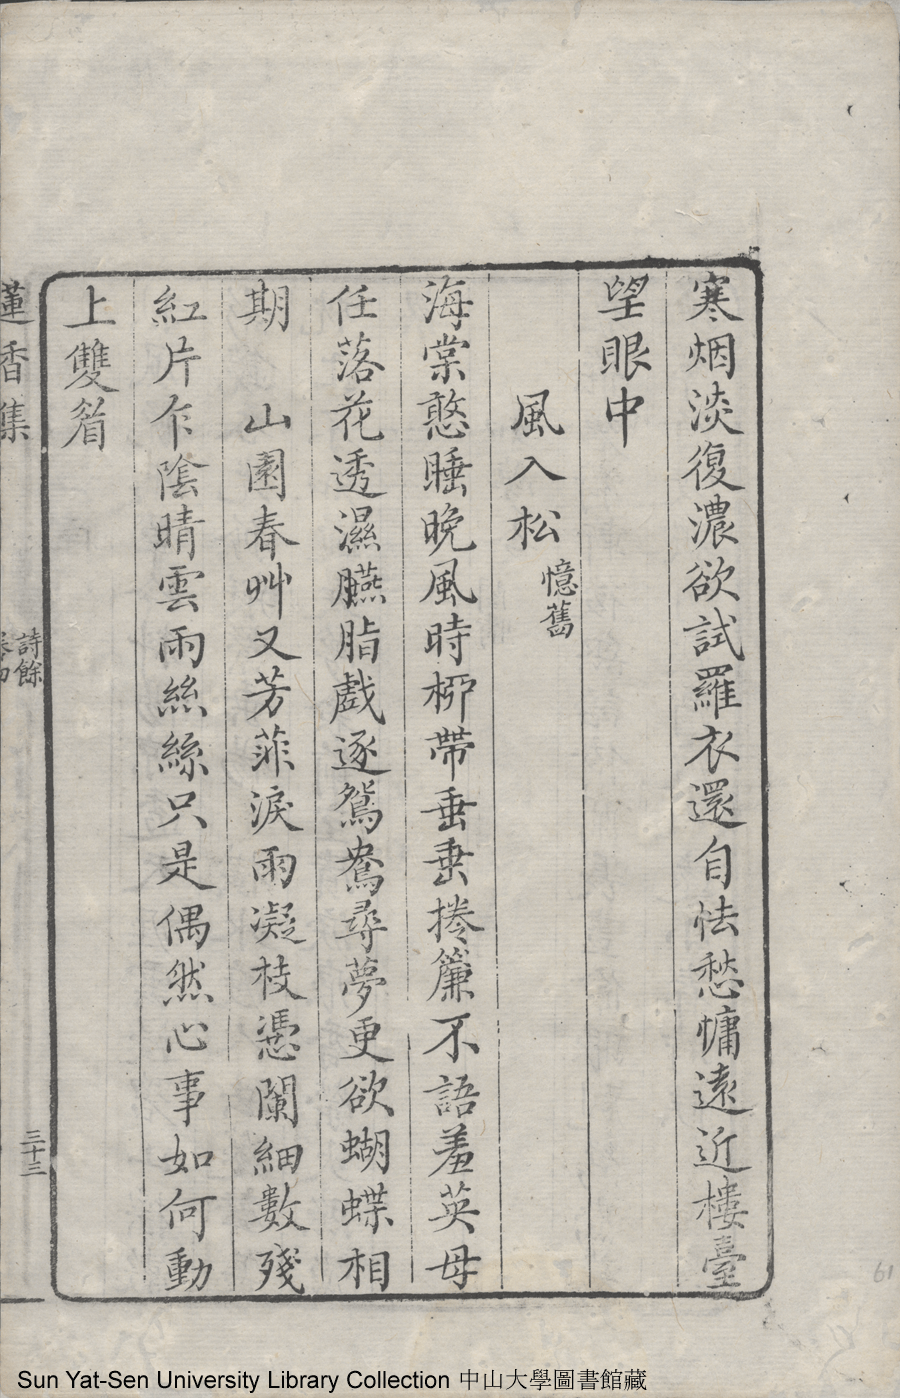 寒烟淡復濃欲試羅衣還自怯愁慵遠近樓臺
望眼中
風入松憶舊
海棠憨睡晚風時柳帶垂垂捲簾不語羞英母
任落花透濕臙脂戲逐鴛鴦尋夢更欲蝴蝶相
期　山園春艸又芳菲淚雨凝枝憑闌細數殘
紅片乍陰晴雲雨絲絲只是偶然心事如何動
上雙眉
蓮香集
詩餘
三十三
61
Sun Yat-Sen University Library Collection 中山大學圖書館藏